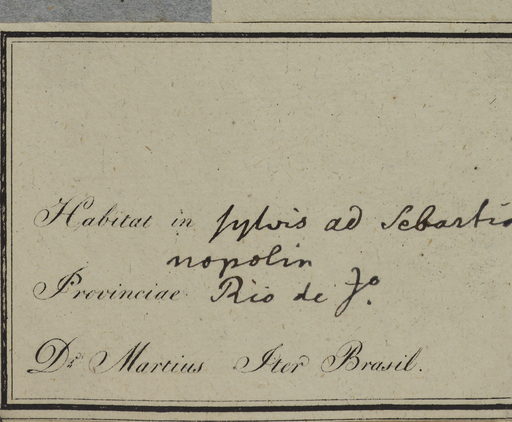 Habitat in sylvis ad Sebastia
nopolin
Provinciae Rio de Jº.
Dr. Martius Iter Brasil.